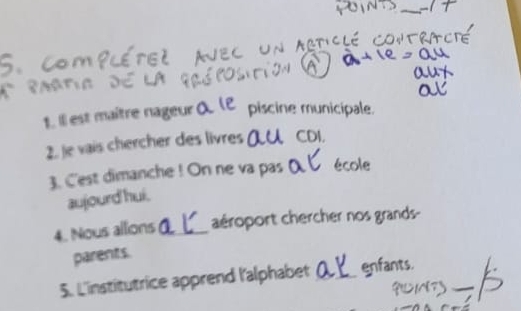 POINTS __/7
5. COMPLÉTEZ AVEC UN ARTICLE CONTRACTÉ
À PARTIR DE LA PRÉPOSITION (À) à+le=au
aux
al'
1. Il est maître nageur a le piscine municipale.
2. Je vais chercher des livres au CDI.
3. C'est dimanche ! On ne va pas al' école
aujourd'hui.
4. Nous allons a l' aéroport chercher nos grands-
parents.
5. L'institutrice apprend l'alphabet al' enfants.
POINTS __/5